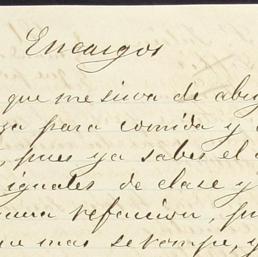 Encargos
que me sirva de abrig
ga para comida y
, pues ya sabes el
iguales de clase y
una refaccion, pu
que mas se rompe, y